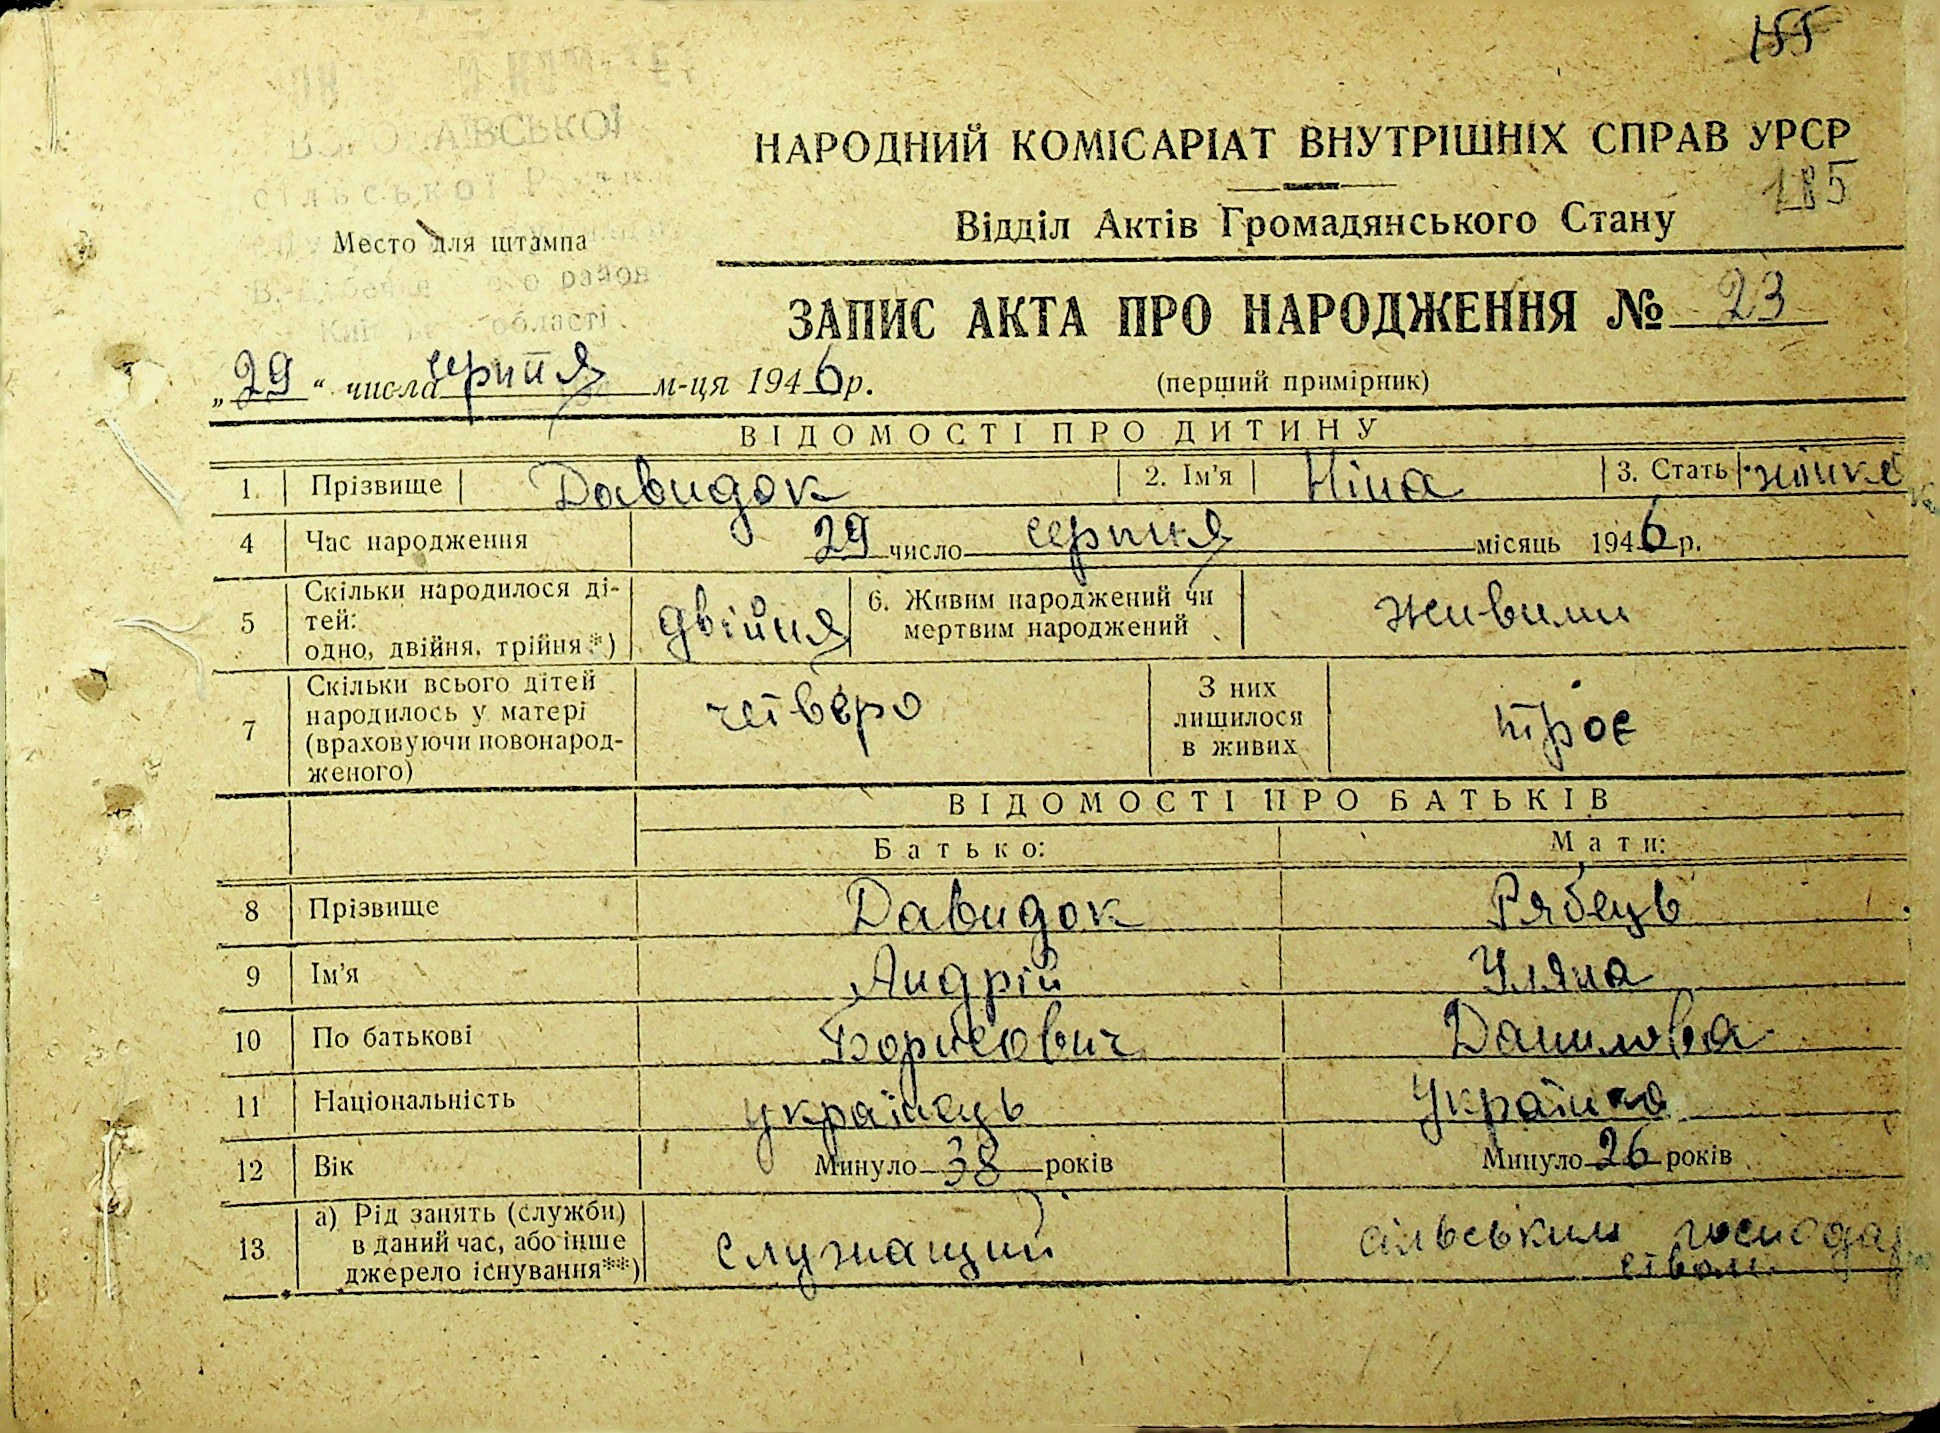 155
НАРОДНИЙ КОМІСАРІАТ ВНУТРІШНІХ СПРАВ УРСР
185
Відділ Актів Громадянського Стану
сільської
Место для штампа
області
ЗАПИС АКТА ПРО НАРОДЖЕННЯ № 23
„29“ числа серпня м-ця 1946 р.
(перший примірник)
ВІДОМОСТІ ПРО ДИТИНУ
1. Прізвище Давидок 2. Ім'я Ніна 3. Стать жіноча
4 Час народження 29 число серпня місяць 1946 р.
5 Скільки народилося ді-
тей:
одно, двійня, трійня*) двійня 6. Живим народжений чи
мертвим народжений живими
7 Скільки всього дітей
народилось у матері
(враховуючи новонарод-
женого) четверо З них
лишилося
в живих троє
ВІДОМОСТІ ПРО БАТЬКІВ
Батько: Мати:
8 Прізвище Давидок Рябець
9 Ім'я Андрій Уляна
10 По батькові Борисович Данилова
11 Національність українець Українка
12 Вік Минуло 38 років Минуло 26 років
13 а) Рід занять (служби)
в даний час, або інше
джерело існування**) служащий сільським господар
ством